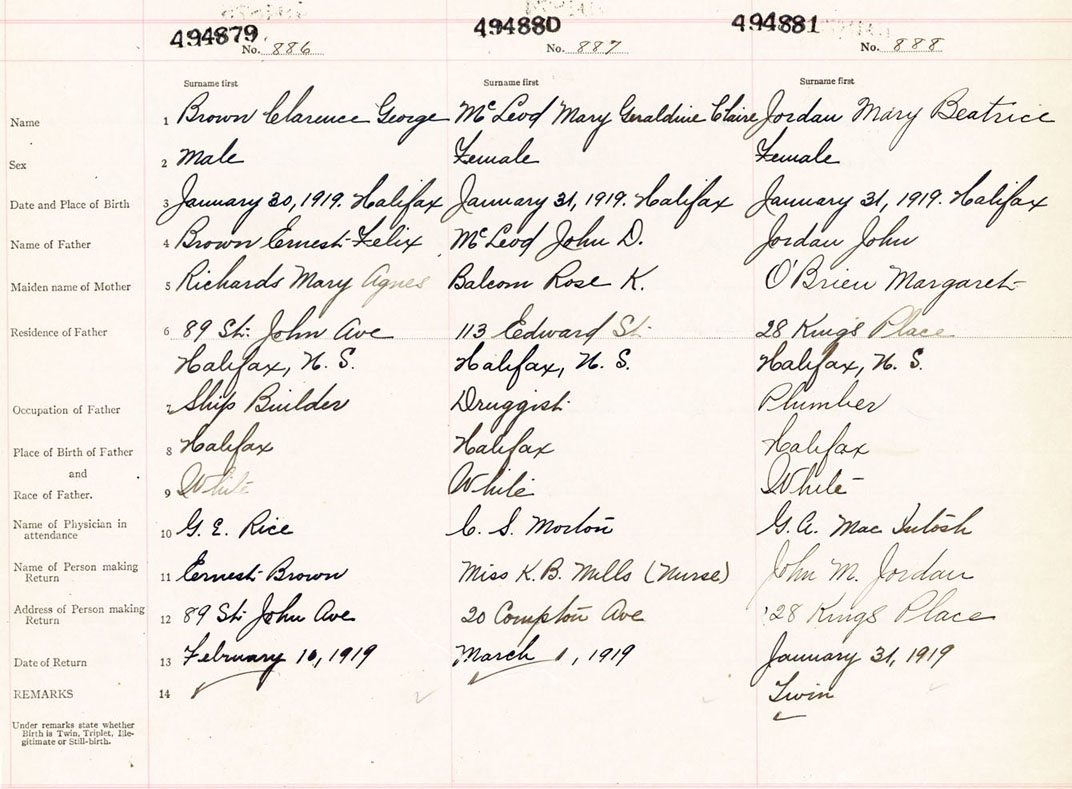 494879 494880 494881
No. 886 No. 887 No. 888
Surname first Surname first Surname first
Name 1 Brown Clarence George McLeod Mary Geraldine Claire Jordan Mary Beatrice
Sex 2 Male Female Female
Date and Place of Birth 3 January 30, 1919. Halifax January 31, 1919. Halifax January 31, 1919. Halifax
Name of Father 4 Brown Ernest Felix McLeod John D. Jordan John
Maiden name of Mother 5 Richards Mary Agnes Balcom Rose K. O'Brien Margaret
Residence of Father 6 89 St. John Ave 113 Edward St. 28 Kings Place
Halifax, N. S. Halifax, N. S. Halifax, N. S.
Occupation of Father 7 Ship Builder Druggist Plumber
Place of Birth of Father 8 Halifax Halifax Halifax
and
Race of Father. 9 White White White
Name of Physician in
attendance 10 G. E. Rice C. S. Morton G. A. Mac Intosh
Name of Person making
Return 11 Ernest Brown Miss K. B. Mills (Nurse) John M. Jordan
Address of Person making
Return 12 89 St. John Ave 20 Compton Ave 28 Kings Place
Date of Return 13 February 10, 1919 March 1, 1919 January 31, 1919
REMARKS 14 Twin
Under remarks state whether
Birth is Twin, Triplet, Ille-
gitimate or Still-birth.